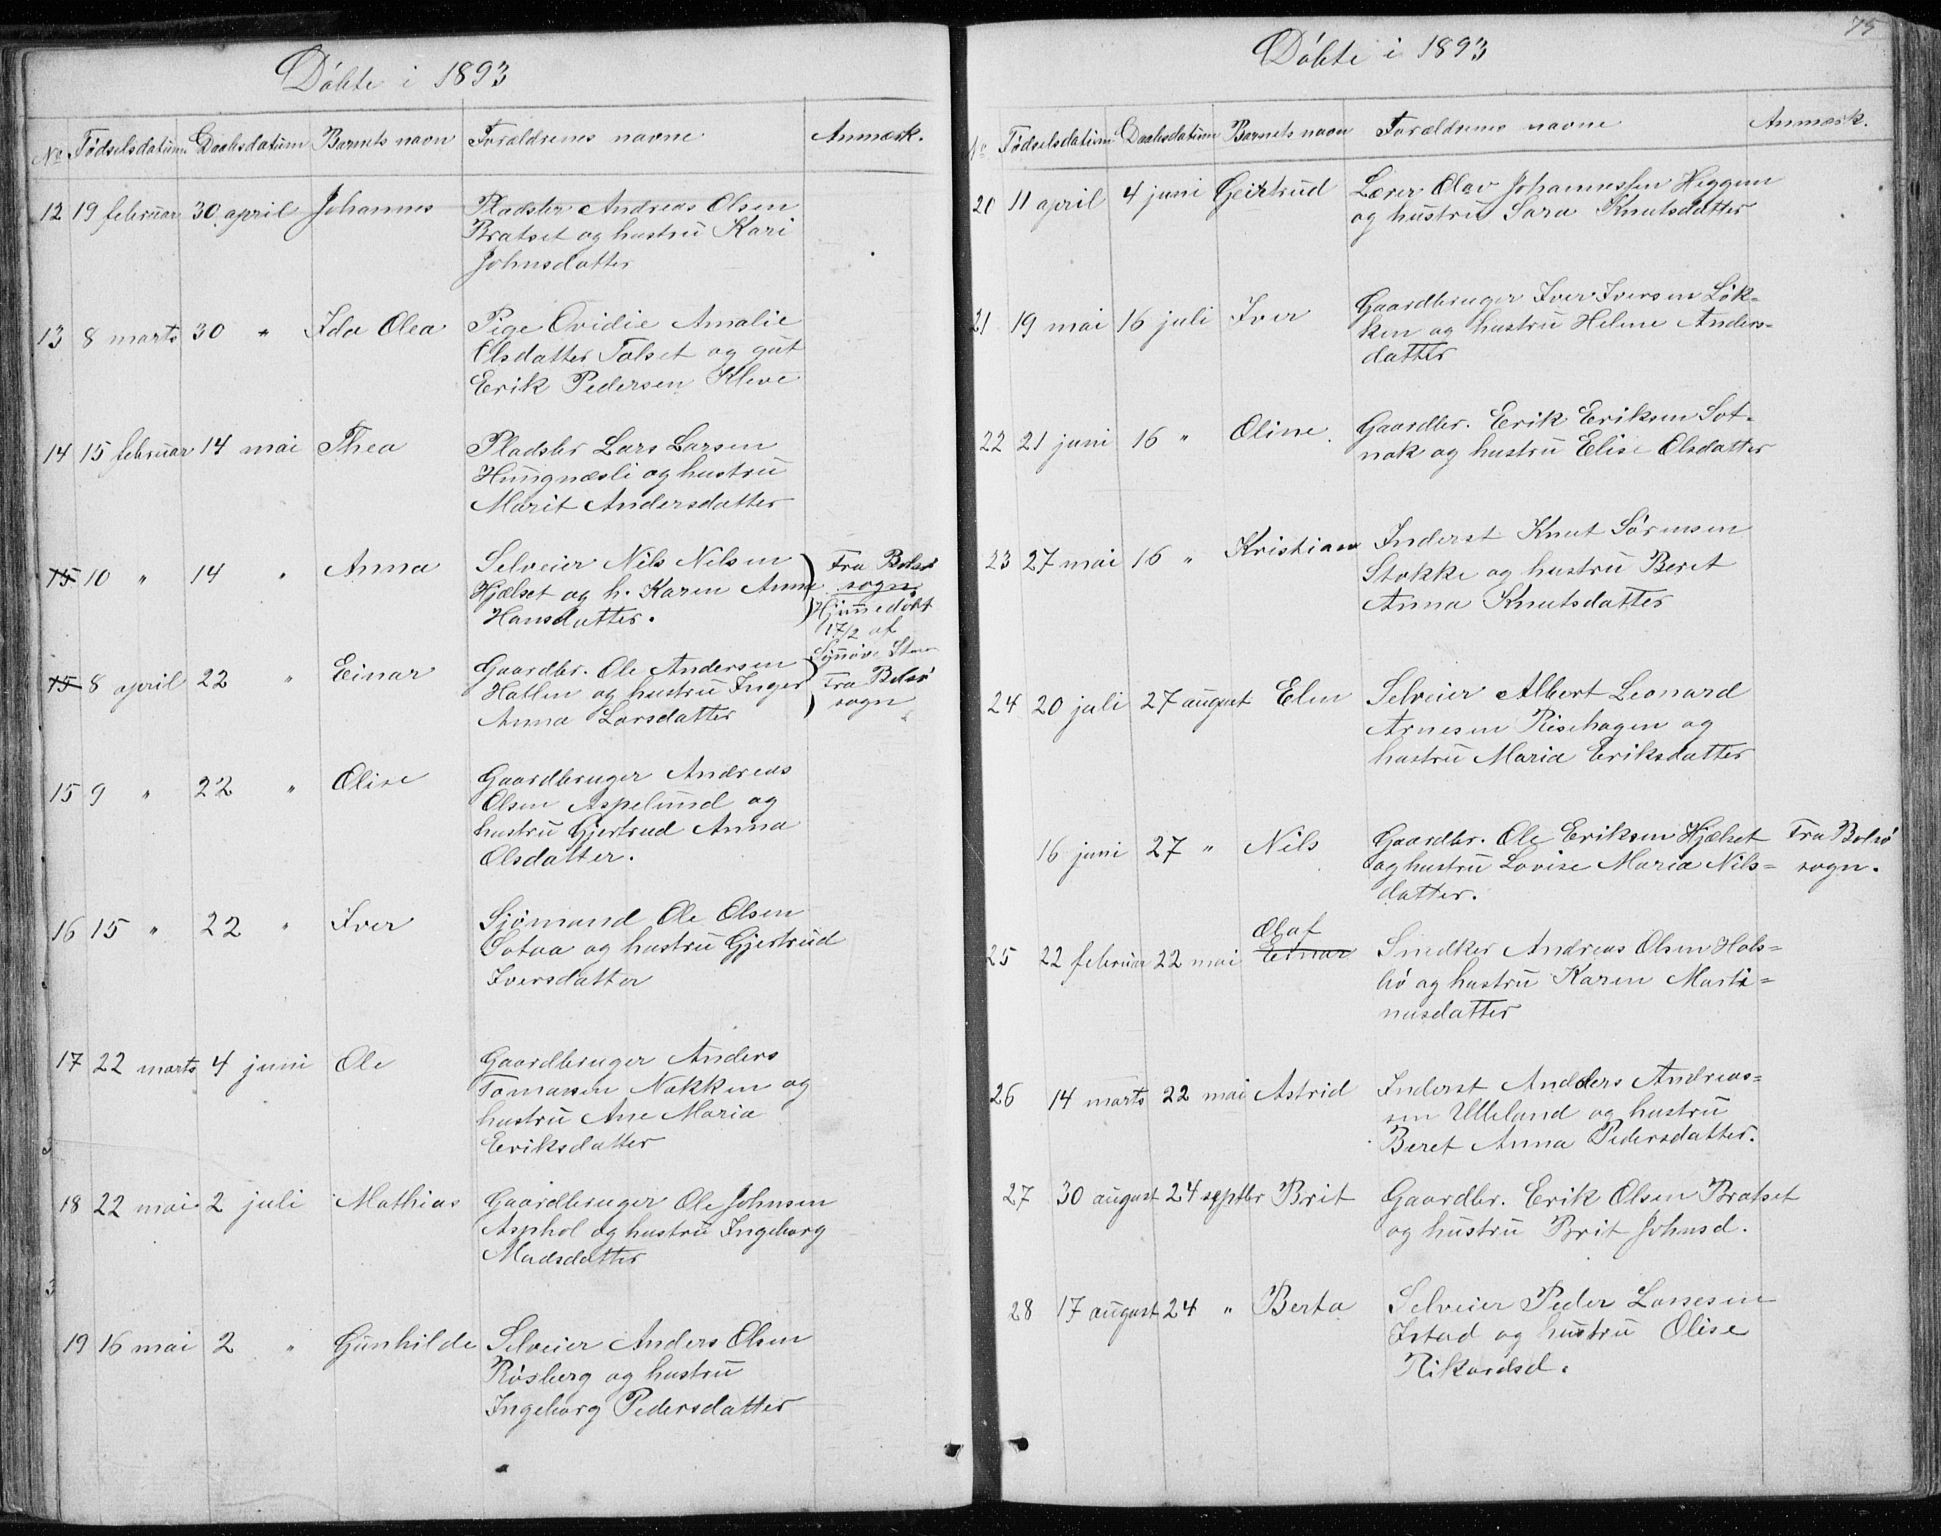 Döbte i 1893
No Fødselsdatum Daabsdatum Barnets navn Forældrenes navne Anmærk.
12 19 februar 30 april Johannes Pladsbr Andreas Olsen
Bratset og hustru Kari
Johnsdatter
13 8 marts 30 " Ida Olea Pige Ovidie Amalie
Olsdatter Talset og gut
Erik Pedersen Kleve
14 15 februar 14 mai Thea Pladsbr Lars Larsen
Hungnæsli og hustru
Marit Andersdatter
15 10 " 14 " Anna Selveier Nils Nilsen Fra Bolsö
Hjælset og h. Karen Anna sogn.
Hansdatter. Hjemmedøbt
17/2 af
Synnöve
15 8 april 22 " Einar Gaardbr. Ole Andersen
Hatlen og hustru Inger Fra Bolsö
Anna Larsdatter sogn
15 9 " 22 " Olise Gaardbruger Andreas
Olsen Aspelund og
hustru Gjertrud Anna
Olsdatter.
16 15 " 22 " Iver Sjömand Ole Olsen
Sotaa og hustru Gjertrud
Iversdatter
17 22 marts 4 juni Ole Gaardbruger Anders
Tomassen Nakken og
hustru Ane Maria
Eriksdatter
18 22 mai 2 juli Mathias Gaardbruger Ole Johnsen
Asphol og hustru Ingeborg
Madsdatter
19 16 mai 2 " Gunhilde Selveier Anders Olsen
Røsberg og hustru
Ingeborg Pedersdatter
75
Döbte i 1893
No Fødselsdatum Daabsdatum Barnets navn Forældrenes navne Anmærk.
20 11 april 4 juni Geirtrud Lærer Olav Johannessen Heggem
og hustru Sara Knutsdatter
21 19 mai 16 juli Iver Gaardbruger Iver Iversen Løk-
ken og hustru Helene Anders-
datter
22 21 juni 16 " Oline Gaardbr. Erik Eriksen Sot-
nak og hustru Elise Olsdatter
23 27 mai 16 " Kristian Inderst Knut Sörensen
Stokke og hustru Beret
Anna Knutsdatter
24 20 juli 27 august Elen Selveier Albert Leonard
Arnesen Risehagen og
hustru Maria Eriksdatter
16 juni 27 " Nils Gaardbr. Ole Eriksen Hjælset Fra Bolsö
og hustru Lovise Maria Nils- sogn.
datter.
Olaf
25 22 februar 22 mai Einar Snedker Andreas Olsen Hals-
bö og hustru Karen Marti-
nusdatter
26 14 marts 22 mai Astrid Inderst Anders Andreas-
sen Ulleland og hustru
Beret Anna Pedersdatter.
27 30 august 24 septbr Brit Gaardbr. Erik Olsen Bratset
og hustru Brit Johnsd.
28 17 august 24 " Berta Selveier Peder Larsen
Istad og hustru Olise
Rikardsd.